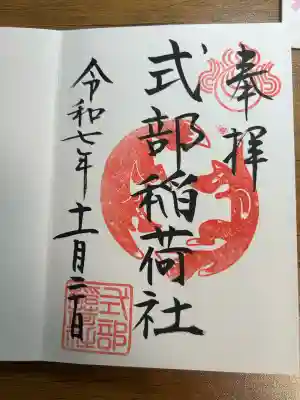 奉拝
式部稲荷社
令和七年十一月二十日
式部